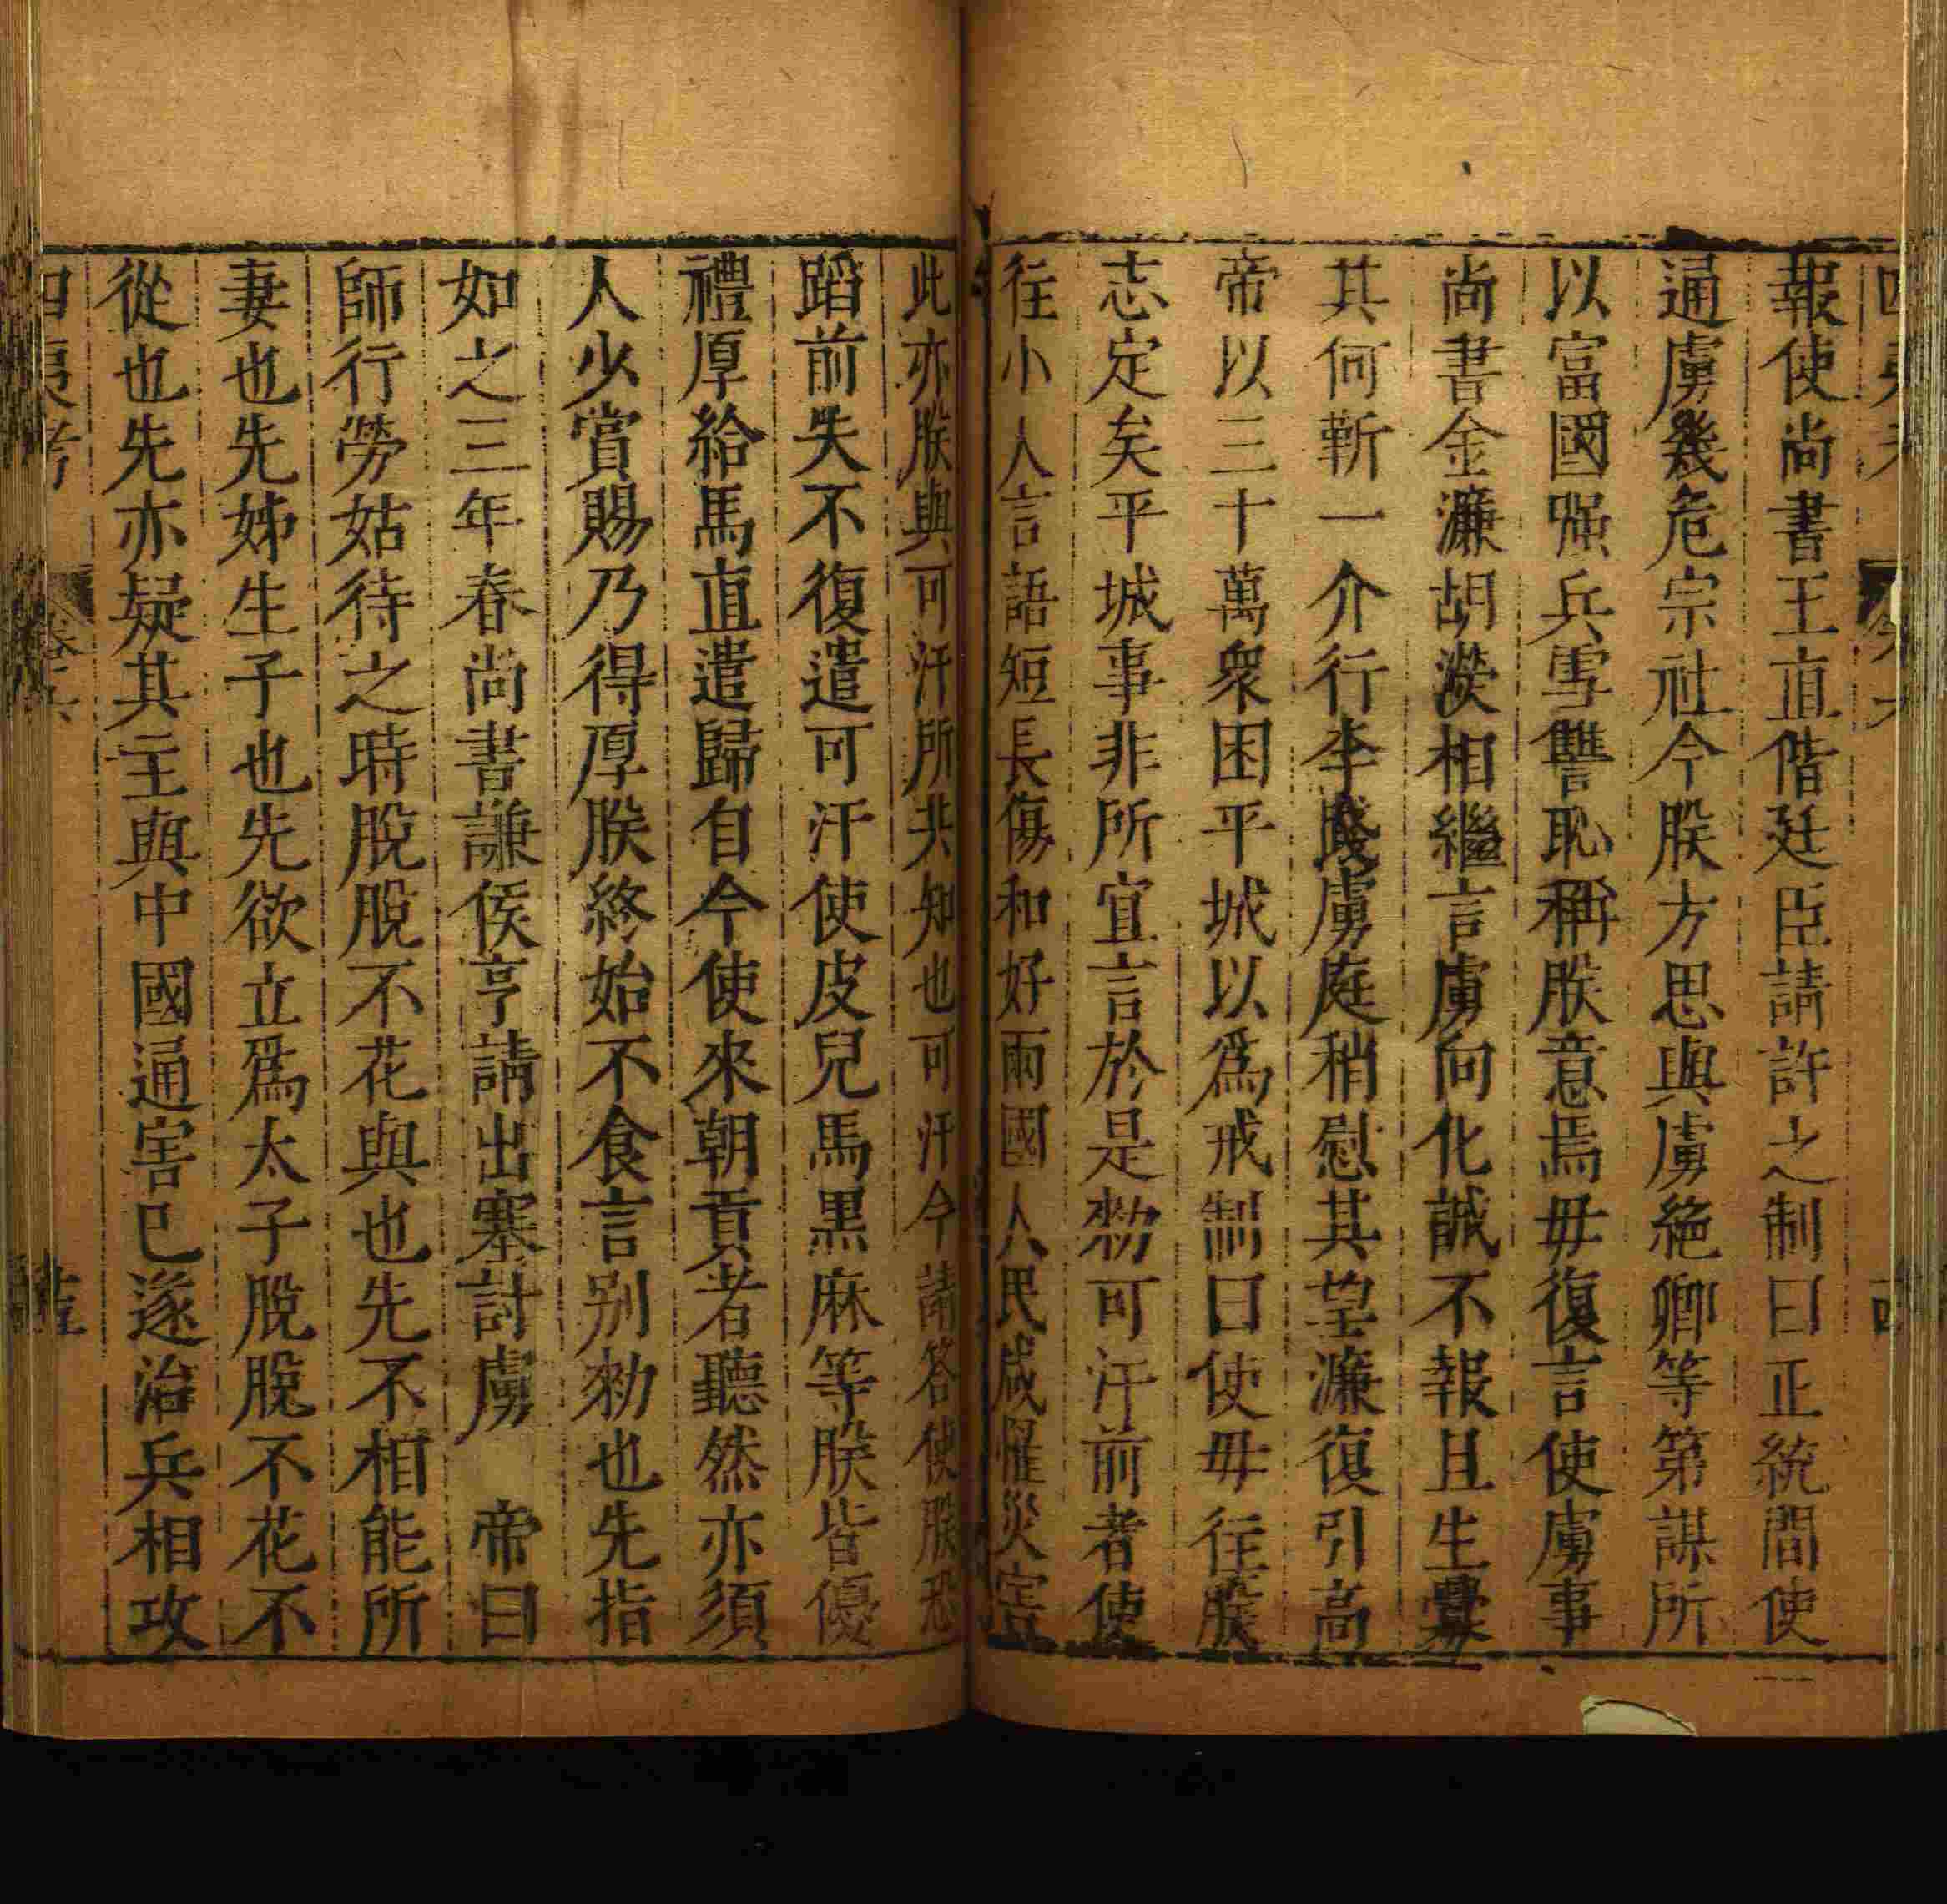 報使尚書王直偕廷臣請許之制曰正統間使
通虜幾危宗社今朕方思與虜絶卿等第謀所
以富國彊兵雪讐恥稱朕意焉毋復言使虜事
尚書金濂胡濙相繼言虜向化誠不報且生釁
其何靳一介行李踐虜庭稍慰其望濂復引高
帝以三十萬衆困平城以爲戒制曰使毋往朕
志定矣平城事非所宜言於是勑可汗前者使
往小人言語短長傷和好兩國人民咸罹災害
此亦朕與可汗所共知也可汗今請答使朕恐
蹈前失不復遣可汗使皮兒馬黑麻等朕皆優
禮厚給馬直遣歸自今使來朝貢者聽然亦須
人少賞賜乃得厚朕終始不食言別勑也先指
如之三年春尚書謙侯亨請出塞討虜　帝曰
師行勞姑待之時脫脫不花與也先不相能所
妻也先姊生子也先欲立爲太子脫脫不花不
從也先亦疑其主與中國通害已遂治兵相攻
四夷考